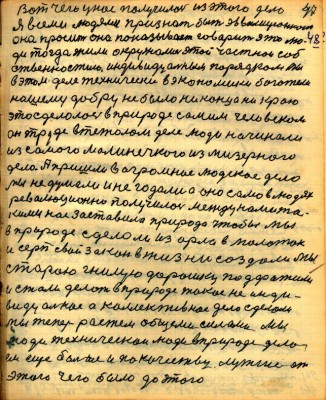 Вот чего у нас получилось из этого дела 47
Я всеми людями признат быть эволюционного
она просит она показывает говорит это лю-
ди тогда жили окружали этой частной соб 48
ственностию индивидуальным порядком ты
в этом деле технически в экономики богател
нашему добру не было ни конца ни краю
это сделалось в природе самим человеком
он труде в тяжолом деле люди начинали
из самого малинечкого из мизерного
дела А пришли в огромное людское дело
ты не думали и не гадали а оно само в людях
революционно получилось между нами та-
кими нас заставила природа чтобы мы
в природе сделали из орла в молоток
и серп свой закон в жизни создали мы
старою гнилую дорошку подражили
и стали делать в природе такое не инди-
видуалное а коллективное дело сделали
мы теперь растем общими силами мы
люди технически люди в природе дела-
ем еще больше и по качеству лучше от
этого чего было до этого